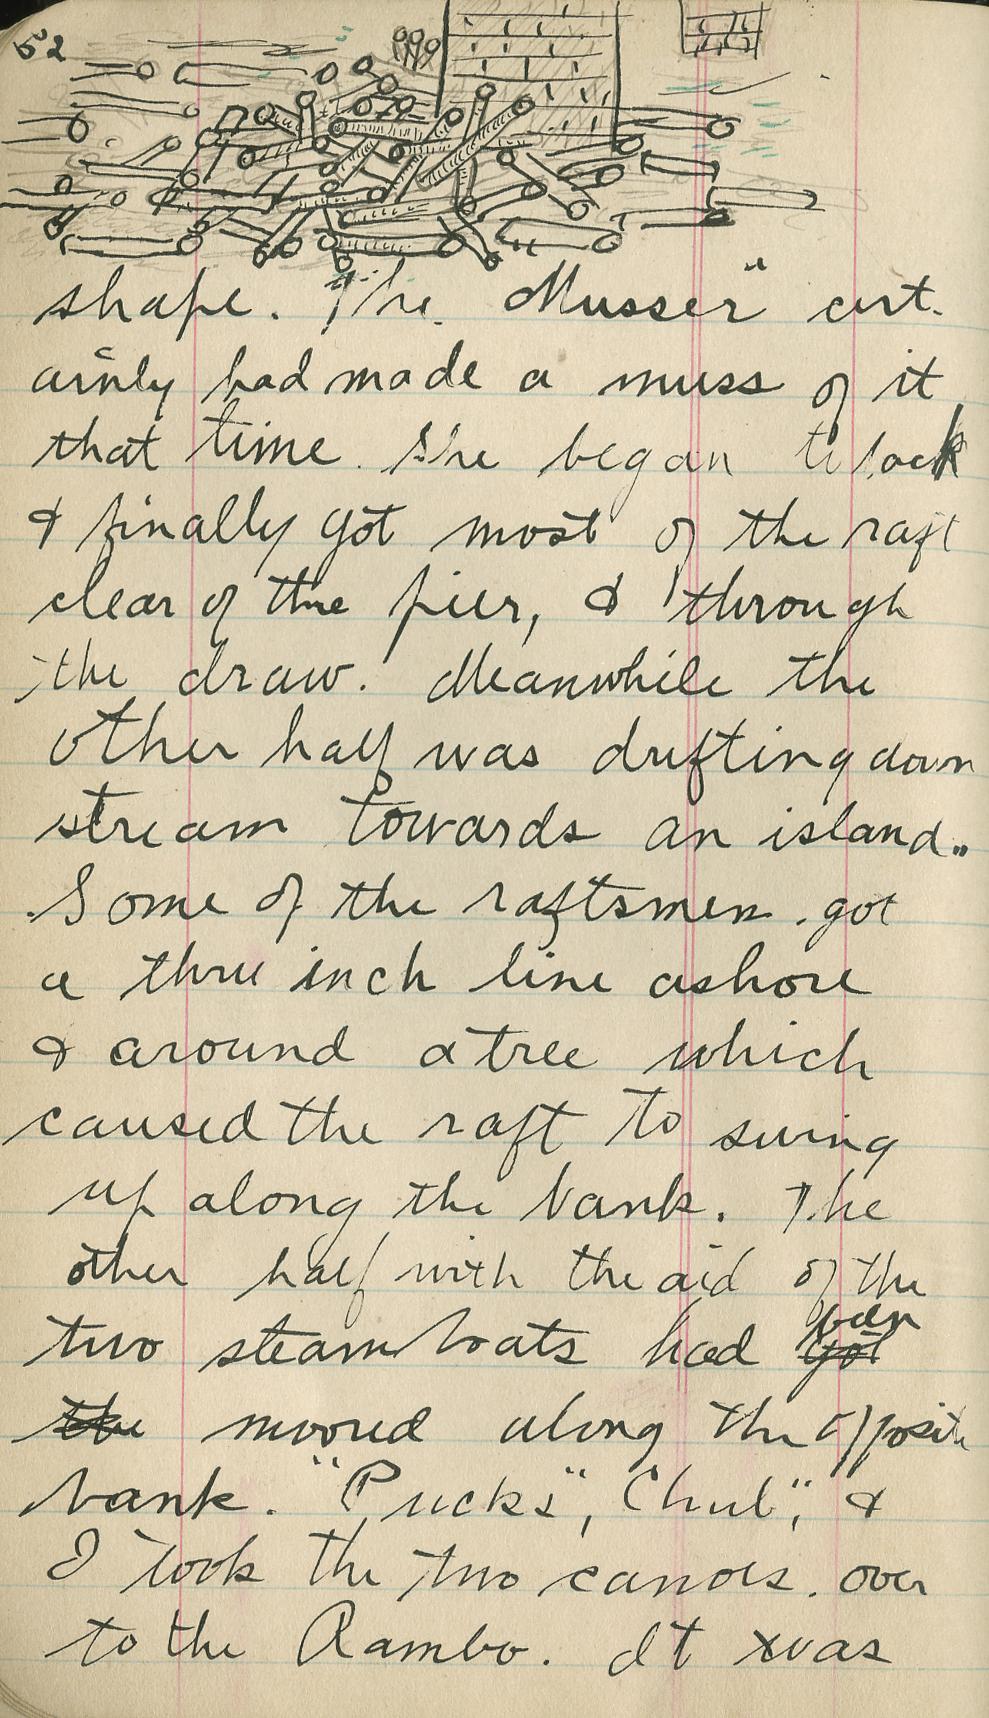 52
shape. The "Musser" cert-
ainly had made a muss of it
that time. She began to back
& finally got most of the raft
clear of the pier, & through
the draw. Meanwhile the
other half was drifting down
stream towards an island..
Some of the raftsmen got
a three inch line ashore
& around a tree which
caused the raft to swing
up along the bank. The
other half with the aid of the
been
two steamboats had got
the moored along the opposite
bank. "Pucks", "Chub", &
I took the two canoes. over
to the Rambo. It was